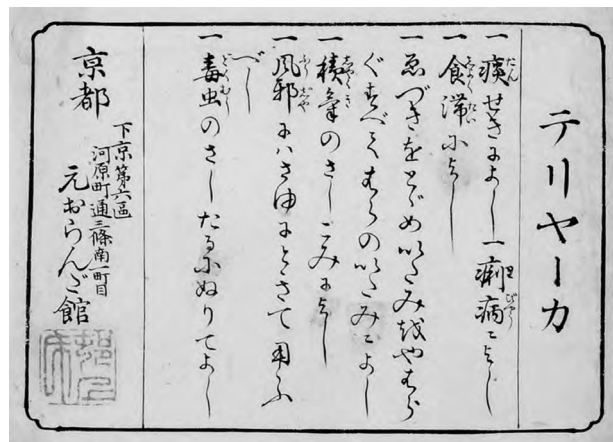 テリヤーカ
一痰せきによし 一痢病によし
一食滞によし
一ゑづきをとゞめいたみをやわら
ぐすべてはらのいたみによし
一積氣のさしこみによし
一風邪にハさゆにときて用ふ
べし
一毒虫のさしたるにぬりてよし
京都
下京第六區
河原町通三條南一町目
元おらんだ館